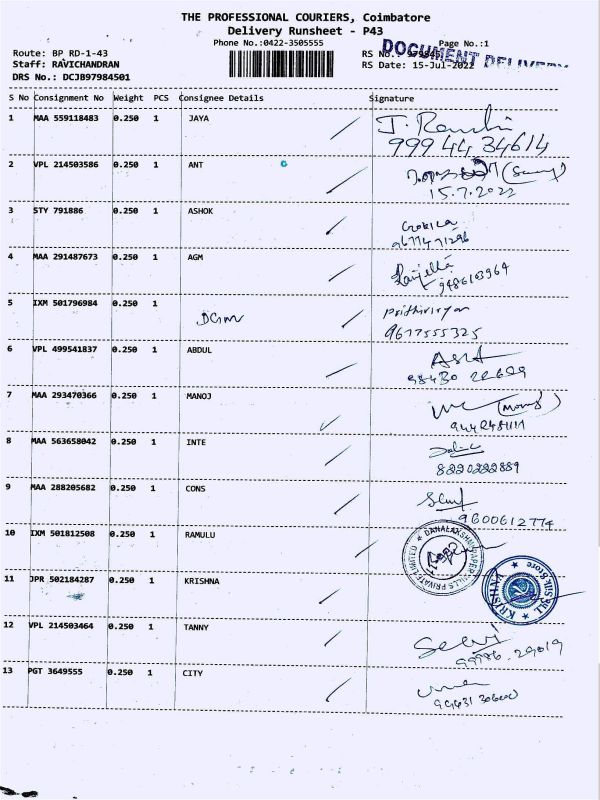 THE PROFESSIONAL COURIERS, Coimbatore
Delivery Runsheet - P43
Phone No.:0422-3505555
Page No.:1
Route: BP RD-1-43
RS No.:
DOCUMENT DELIVERY
Staff: RAVICHANDRAN
RS Date: 15-Jul-2022
DRS No.: DCJB97984501
S No Consignment No Weight PCS Consignee Details Signature
1 MAA 559118483 0.250 1 JAYA
999 44 34614
2 VPL 214503586 0.250 1 ANT
15.7.2022
3 STY 791886 0.250 1 ASHOK
9677471296
4 MAA 291487673 0.250 1 AGM
9486103964
5 IXM 501796984 0.250 1 DGM
9677555325
6 VPL 499541837 0.250 1 ABDUL
98430 22609
7 MAA 293470366 0.250 1 MANOJ
8 MAA 563658042 0.250 1 INTE
8220222889
9 MAA 288205682 0.250 1 CONS
9600612774
10 IXM 501812508 0.250 1 RAMULU
PRIVATE LIMITED
11 JPR 502184287 0.250 1 KRISHNA
12 VPL 214503464 0.250 1 TANNY
Selvi
13 PGT 3649555 0.250 1 CITY